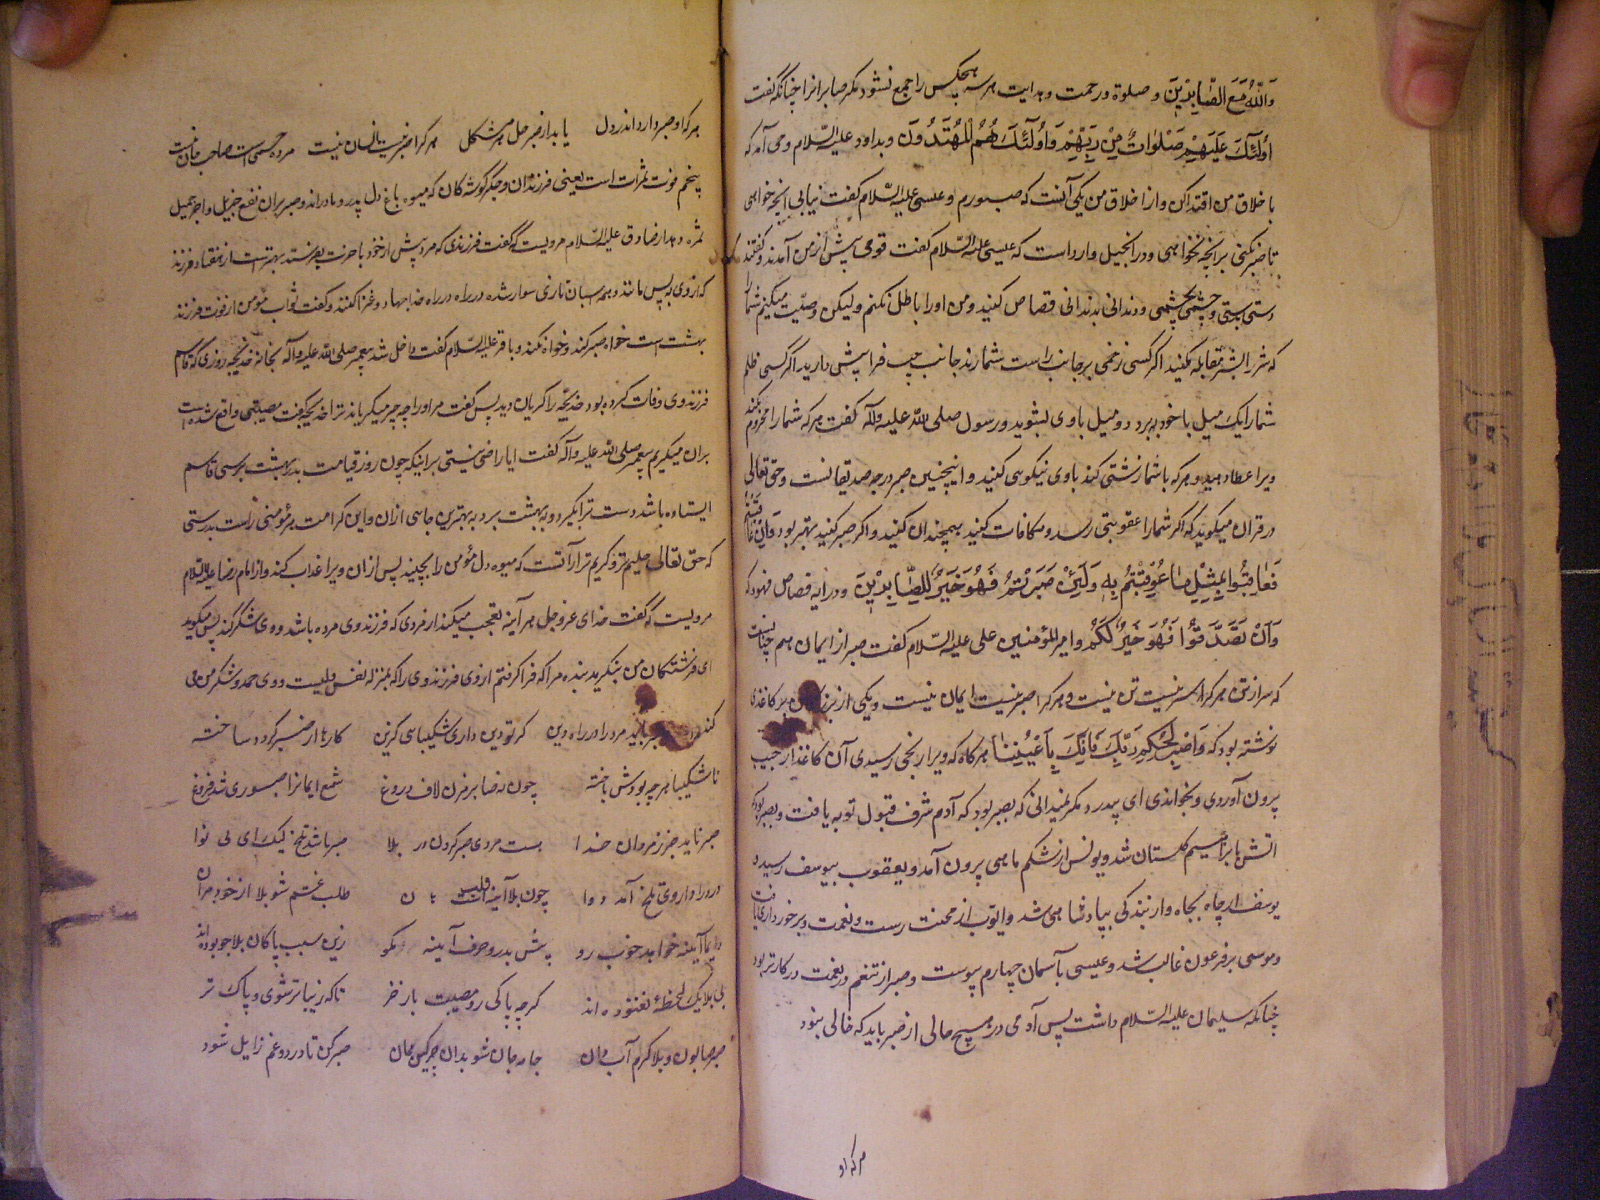 وَاللّهُ مَعَ الصّابِرِینَ و صلوة و رحمت و هدایت هر سه هیچکس را جمع نشود مکر صابرانرا چنانکه گفت
اُولٰٓئِکَ عَلَیْهِمْ صَلَوٰاتٌ مِنْ رَبِّهِمْ وَاُولٰٓئِکَ هُمُ الْمُهْتَدُونَ و بداود علیه السّلام وحی آمد که
باخلاق من اقتدا کن و از اخلاق من یکی آنست که صبورم و عیسی علیه السّلام گفت نیابی انچه خواهی
تا صبر نکنی برانچه نخواهی و در انجیل وارد است که عیسی علیه السّلام گفت قومی پیش از من آمدند و گفتند
دستی بدستی و چشمی بچشمی و دندانی بدندانی قصاص کنید و من اورا باطل نکنم ولیکن وصیّت میکنم شما را
که شر را بشر مقابله مکنید اکر کسی زخمی بر جانب راست شما زند جانب چپ فرا پیش دارید اگر کسی ظلم
شما را یک میل با خود ببرد دو میل با وی بشوید و رسول صلی الله علیه وآله گفت هر که شما را محروم کند
ویرا عطا دهید و هر که با شما زشتی کند با وی نیکویی کنید و اینچنین صبر درجه صدیقانست و حق تعالی
در قران میکوید که اکر شما را عقوبتی رسد و مکافات کنید همچندان کنید و اکر صبر کنید بهتر بود وَاِنْ عٰاقَبْتُمْ
فَعٰاقِبُوا بِمِثْلِ مٰا عُوقِبْتُمْ بِهِ وَلَئِنْ صَبَرْتُمْ فَهُوَ خَیْرٌ لِلصّٰابِرِیْنَ و در ایه قصاص فرمود که
وَاَنْ تَصَدَّقُوْا فَهُوَ خَیْرٌ لَکُمْ و امیرالمؤمنین علی علیه السّلام گفت صبر از ایمان هم چنانست
که سر از تن هر کرا سر نیست تن نیست و هر کرا صبر نیست ایمان نیست و یکی از بزرکان بر کاغذی
نوشته بود که وَاصْبِرْ لِحُکْمِ رَبِّکَ فَاِنَّکَ بِاَعْیُنِنٰا هر کاه که ویرا رنجی رسیدی آن کاغذ از جیب
بیرون آوردی و بخواندی ای پدر مکر نمیدانی که بصبر بود که آدم شرف قبول توبه یافت و بصبر بود که
اتش بابراهیم کلستان شد و یونس از شکم ماهی بیرون آمد و یعقوب بیوسف رسید و
یوسف از چاه بجاه و از بندکی بپادشاهی شد و ایّوب از محنت رست و نعمت و برخورداری یافت
و موسی بر فرعون غالب شد و عیسی بآسمان چهارم پیوست و صبر از تنعم در نعمت در کارتر بود
چنانکه سلیمان علیه السّلام داشت پس آدمی در هیچ حالی از صبر باید که خالی نبود
هر که او
هر که او صبر دارد اندر دل یابد از صبر حل هر مشکل هر کرا صبر نیست انسان نیست مرده جسمی است صاحب جان نیست
پنجم فوت ثمرات است یعنی فرزندان و جگرگوشه کان که میوه باغ دل پدر و مادراند و صبر بران نفع جزیل و اجر جمیل
ثمره دهد از صادق علیه السّلام مرویست که گفت فرزندی که مرد پیش از خود با حضرت بفرستد بهتر است از هفتاد فرزند
که از وی بپس مانند و همه بر اسبان تازی سوار شده در راه خدا جهاد و غزا کنند و گفت ثواب مؤمن از فوت فرزند
بهشت است خواه صبر کند و خواه نکند و باقر علیه السّلام گفت داخل شد پیغمبر صلی الله علیه وآله بخانه خدیجه روزی که قاسم
فرزند وی وفات کرده بود خدیجّه را گریان دید پس گفت مر اورا چه چیز میگریاند ترا خدیجه گفت مصیبتی واقع شده است
بران میگریم پیغمبر صلی الله علیه وآله گفت ایا راضی نیستی بر اینکه چون روز قیامت بدر بهشت برسی قاسم
ایستاده باشد دست ترا بگیرد و به بهشت برد به بهترین جاسی ازان و این کرامت هر مؤمنی راست بدرستی
که حق تعالی حلیم‌تر و کریم‌تر از آنست که میوه دل مؤمن را بچیند پس ازان ویرا عذاب کند و از امام رضا علیه السلام
مرویست که گفت خدای عزوجل هر آینه تعجب میکند از مردی که فرزند وی مرده باشد و وی شکر کند پس میکوید
ای فرشتکان من بنکرید بنده مرا که فرا کرفتم از وی فرزند وی را که بمنزله نفس ویست و وی حمد و شکر من می
کند صبر باید مرد را در راه دین کر تو دین داری شکیباسی کزین کارها از صبر کردد ساخته
ناشکیبا هر چه بودش باخته چون نه صابر مزن لاف دروغ شمع ایمانرا صبوری شد فروغ
صبر ناید جز ز مردان خدا هست مردی صبر کردن در بلا صبر باشد تلخ لیک ای بی نوا
درد را داروی تلخ آمد دوا چون بلا آینه است طلب غشم شو بلا از خود مران
دایماً آینه خواهد خوب رو پیش بدرو حرف آینه مکو زین سبب پاکان بلاجو بوده‌اند
بی بلا یک لحظهٔ نغنوده اند کرچه پاکی رو مصیبت باز خر تا که زیباتر شوی و پاک تر
صبر صابون و بلا کرم آب دان جامه جان شو بدان چرکین بمان صبر کن تا درد و غم زایل شود